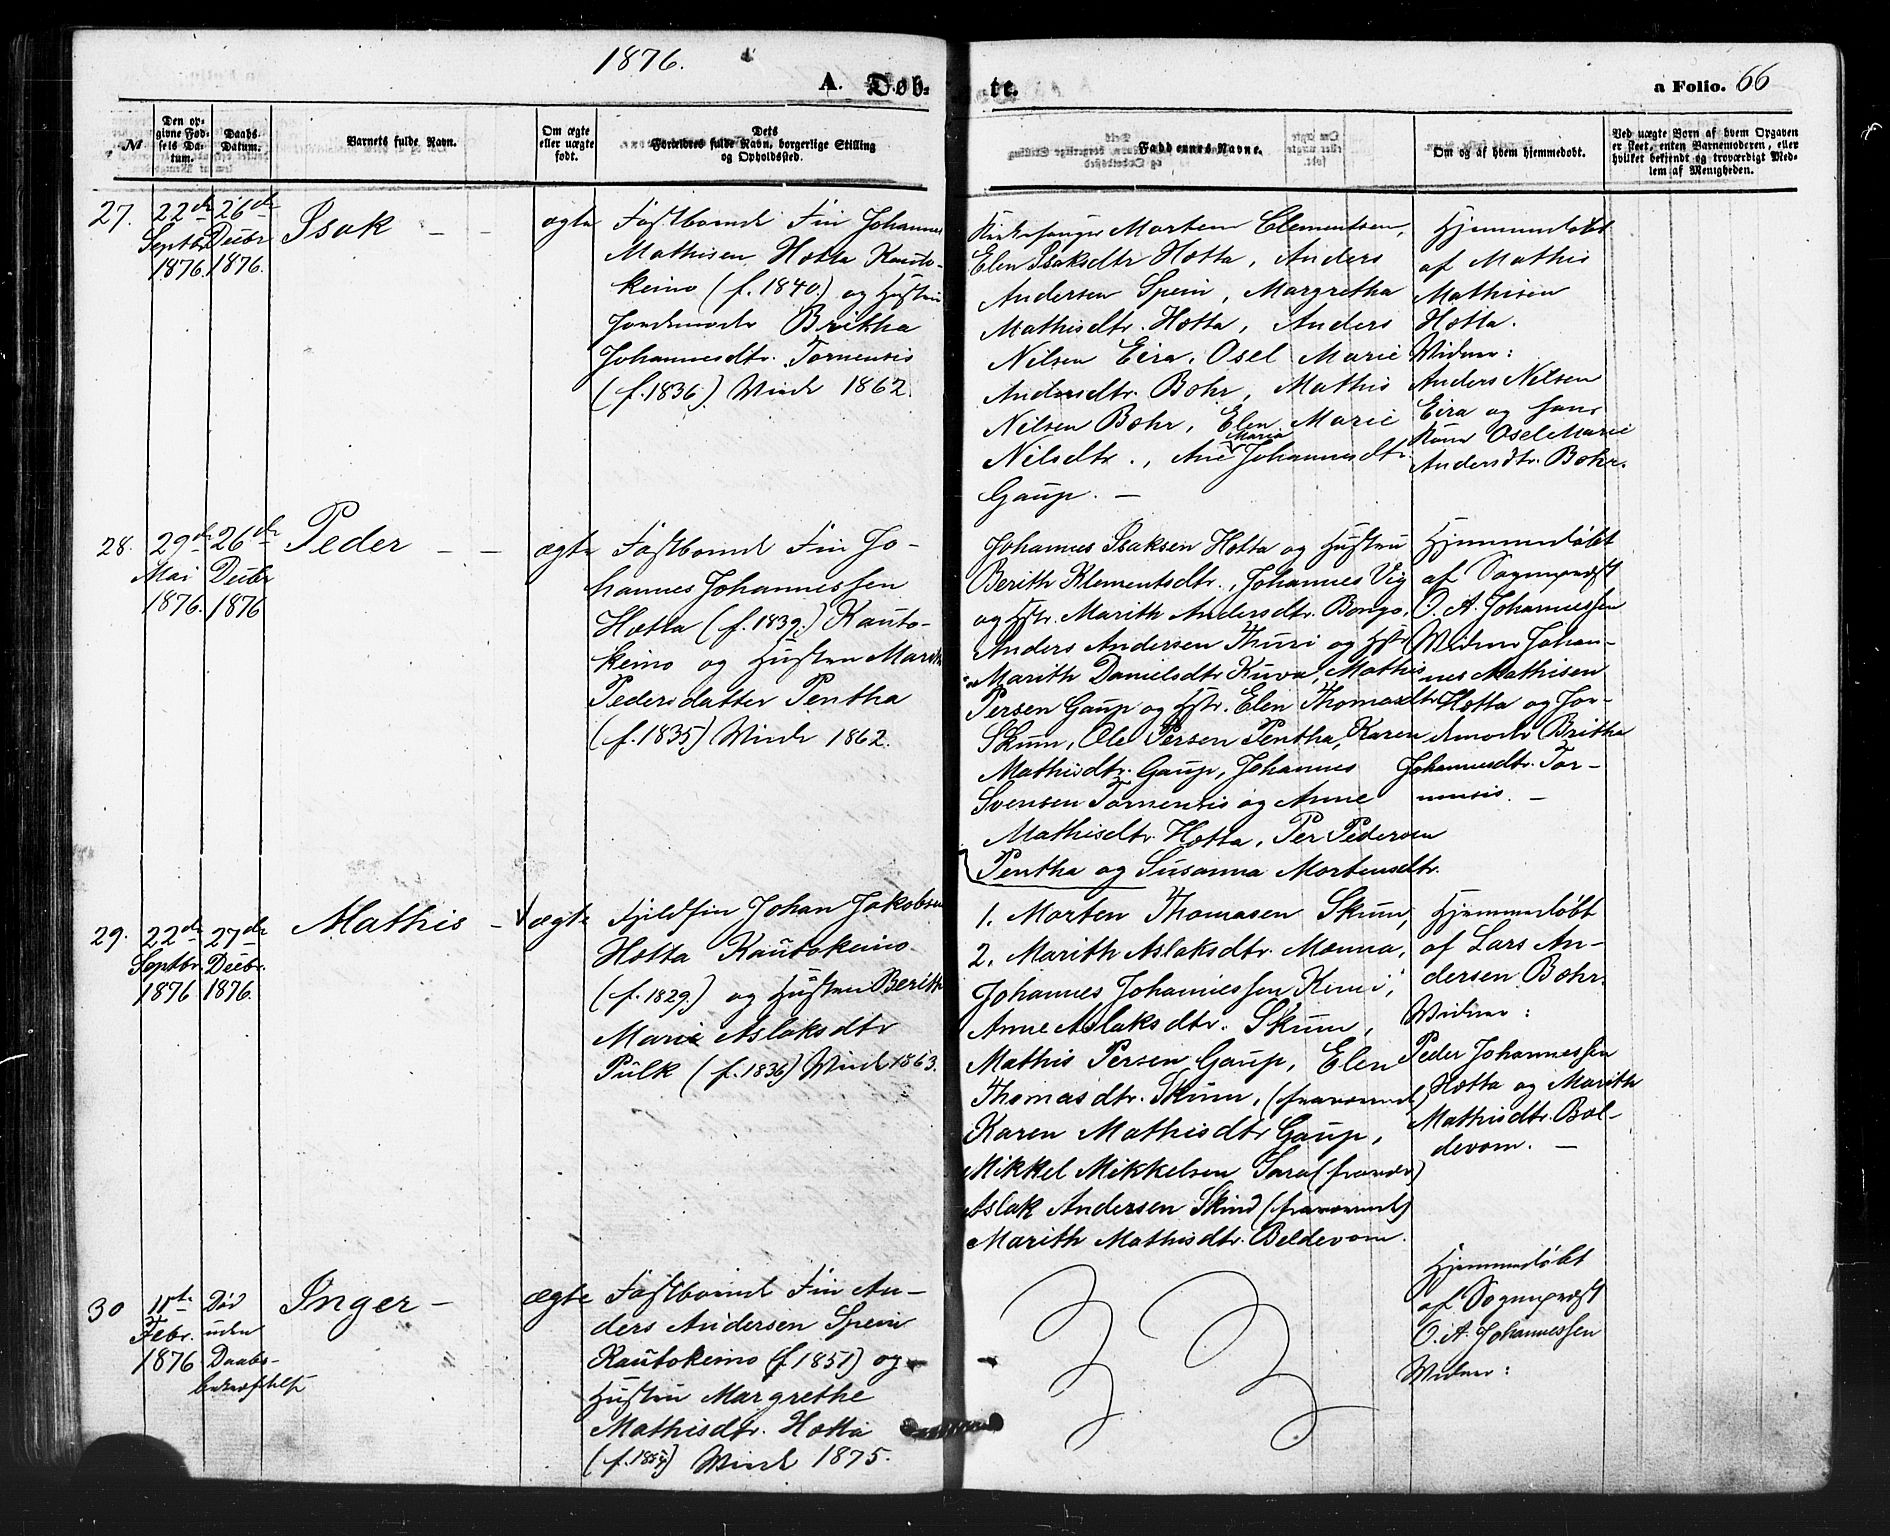 1876.
A. Døb-
te.
a Folio. 66
№
Den op-
givne Fød-
sels Da-
tum.
Daabs-
Datum.
Barnets fulde Navn.
Om ægte
eller uægte
født.
Dets
Forældres fulde Navn, borgerlige Stilling
og Opholdssted.
Faddernes Navne.
Om og af hvem hjemmedøbt.
Ved uægte Børn af hvem Opgaven
er skeet, enten Barnemoderen, eller
hvilket bekjendt og troværdigt Med-
lem af Menigheden.
27.
22de
Septbr
1876.
26de
Decbr
1876.
Isak - -
ægte
Fastboende Fin Johannes
Mathisen Hætta Kauto-
keino (f. 1840.) og Hustru
Jordemoder Brithha
Johannesdtr. Tornensis
(f. 1836) Viede 1862.
Kirkesanger Morten Clementsen,
Elen Isaksdtr Hætta, Anders
Andersen Spein, Margretha
Mathisdtr. Hætta, Anders
Nilsen Eira, Osel Marie
Andersdtr. Bæhr, Mathis
Nilsen Bæhr, Elen Marie
Nilsdtr., Ane Maria Johannesdtr.
Gaup. -
Hjemmedøbt
af Mathis
Mathisen
Hætta.
Vidner:
Anders Nilsen
Eira og hans
Kone Osel Marie
Andersdtr. Bæhr.
28.
29de
Mai
1876.
26de
Decbr
1876
Peder - -
ægte
Fastboende Fin Jo-
hannes Johannessen
Hætta (f. 1839.) Kauto-
keino og Hustru Marith
Pedersdatter Pentha
(f. 1835) Viede 1862.
Johannes Isaksen Hætta og Hustru
Berith Klementsdtr., Johannes Vig
og Hstr. Marith Andersdtr. Bongo,
Anders Andersen Thuri og Hstr
Marith Danielsdtr Kuva, Mathis
Persen Gaup og Hstr. Elen Thomasdtr
Skum, Ole Persen Pentha, Karen
Mathisdtr. Gaup, Johannes
Svensen Tornensis og Anne
Mathisdtr. Hætta, Per Pedersen
Pentha og Susanna Mortensdtr.
Hjemmedøbt
af Sognepræst
O. A. Johannessen
Vidner Johan-
nes Mathisen
Hætta og Jor-
demoder Britha
Johannesdtr. Tor-
nensis. -
29.
22de
Septbr.
1876
27de
Decbr.
1876.
Mathis -
ægte
Fjeldfin Johan Jakobsen
Hætta Kautokeino
(f. 1829.) og Hustru Berith
Marie Aslaksdtr
Pulk (f. 1836) Viede 1863.
1. Morten Thomasen Skum,
2. Marith Aslaksdtr. Mænna,
Johannes Johannessen Kimi,
Anne Aslaksdtr. Skum,
Mathis Persen Gaup, Elen
Thomasdtr. Skum, (fraværende)
Karen Mathisdtr Gaup,
Mikkel Mikkelsen Sara (fravær)
Aslak Andersen Skind (fraværende)
Marith Mathisdtr. Beldevom.
Hjemmedøbt
af Lars An-
dersen Bæhr.
Vidner:
Peder Johannessen
Hætta og Marith
Mathisdtr. Bæl-
devom. -
30
11te
Febr.
1876
Død
uden
Daabs-
bekræftelse
Inger -
ægte
Fastboende Fin An-
ders Andersen Spein
Kautokeino (f. 1851) og
Hustru Margrethe
Mathisdtr. Hætta
(f. 1854) Viede 1875.
Hjemmedøbt
af Sognepræst
O. A. Johannessen
Vidner: